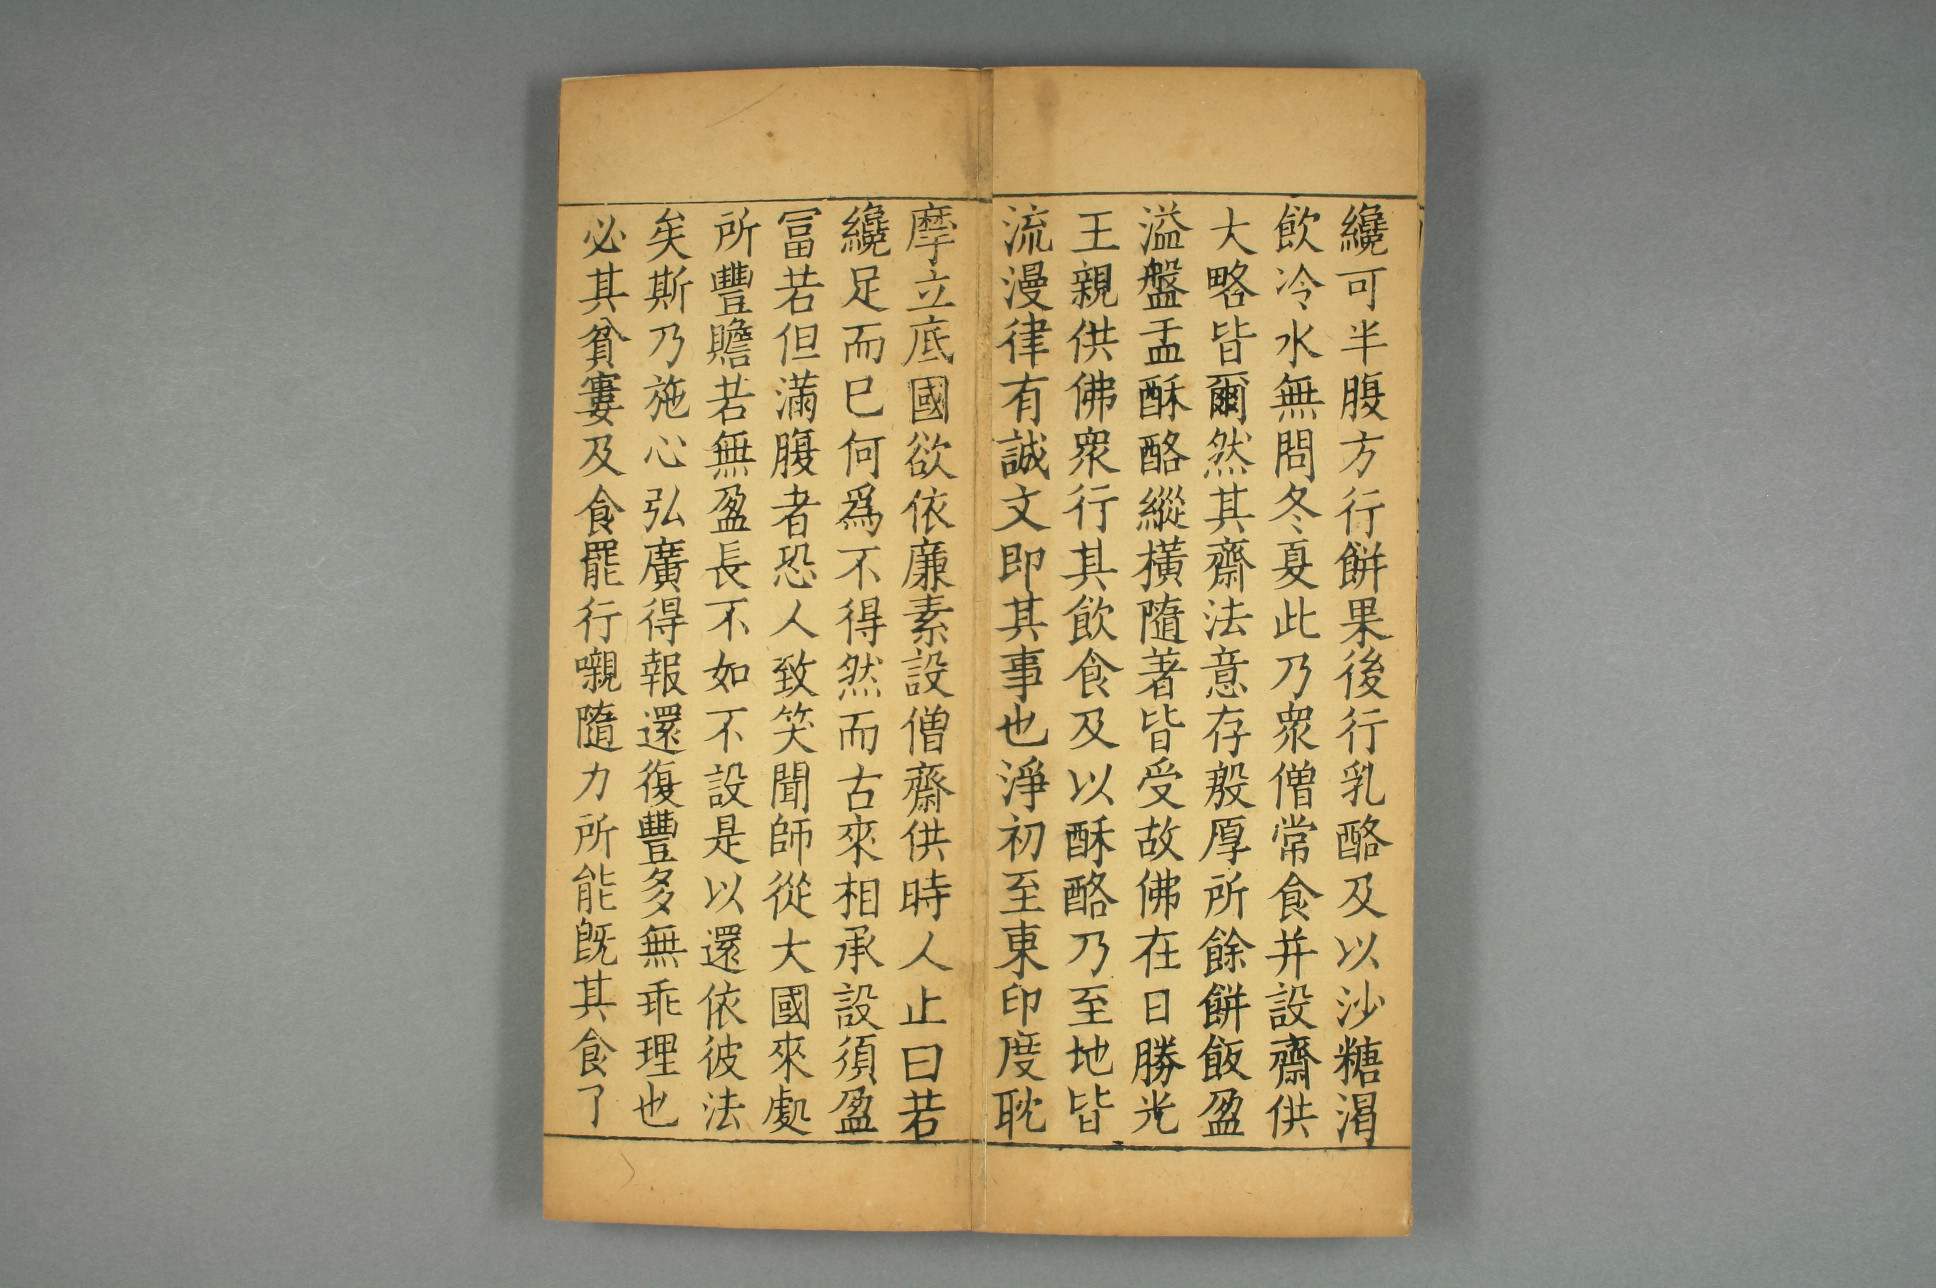 纔可半腹方行餅果後行乳酪及以沙糖渴
飲冷水無問冬夏此乃眾僧常食并設齋供
大略皆爾然其齋法意存殷厚所餘餅飯盈
溢盤盂酥酪縱橫隨著皆受故佛在日勝光
王親供佛眾行其飲食及以酥酪乃至地皆
流漫律有誠文即其事也淨初至東印度耽
摩立底國欲依廉素設僧齋供時人止曰若
纔足而已何為不得然而古來相承設須盈
富若但滿腹者恐人致笑聞師從大國來處
所豐贍若無盈長不如不設是以還依彼法
矣斯乃施心弘廣得報還復豐多無乖理也
必其貧窶及食罷行嚫隨力所能既其食了